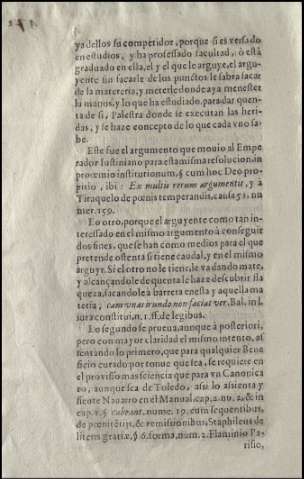 ya dellos su competidor, porque si es versado
en estudios, y ha professado facultad, ò està
graduado en ella, el y el que le arguye, el argu-
yente sin sacarle de los punctos le sabra sacar
de la materia, y meterle donde aya menester
la manos, y lo que ha estudiado, para dar quen-
ta de si, Palestra donde se executan las heri-
das, y se haze concepto de lo que cada vno sa-
be.
Este fue el argumento que mouio al Empe-
rador Iustiniano para esta misma resolucion, in
proœmio institutionum, § cum hoc Deo pro-
pitio, ibi: Ex multis rerum argumentis, y a
Tiraquelo de pœnis temperandis, causa 51. nu
mer. 159.
Lo otro, porque el arguyente como tan in-
teressado en el mismo argumento à conseguir
dos fines, que se han como medios para el que
pretende ostenta si tiene caudal, y en el mismo
arguye. Si el otro no le tiene, le va dando mate,
y alcançandole de quenta le haze descubrir fla
queza, sacandole à barrera en esta y aquella ma
teria, cum vna irundo non faciat ver, Bal. in l.
iura constitui, n. 1. ff. de legibus.
Lo segundo se prueua, aunque à posteriori,
pero con mayor claridad el mismo intento, as-
sentando lo primero, que para qualquier Bene
ficio curado por tenue que sea, se requiere en
el prouisto mas sciencia que para vn Canonica
to, aunque sea de Toledo, assi lo assienta y
siente Nauarro en el Manual, cap. 2. nu. 2. & in
cap. 1. § nume. 19. cum sequentibus,
de pœnitētijs, & remissionibus, Staphileus de
literis gratiæ, § 6. forma, num. 2. Flaminio Pa-
risio,